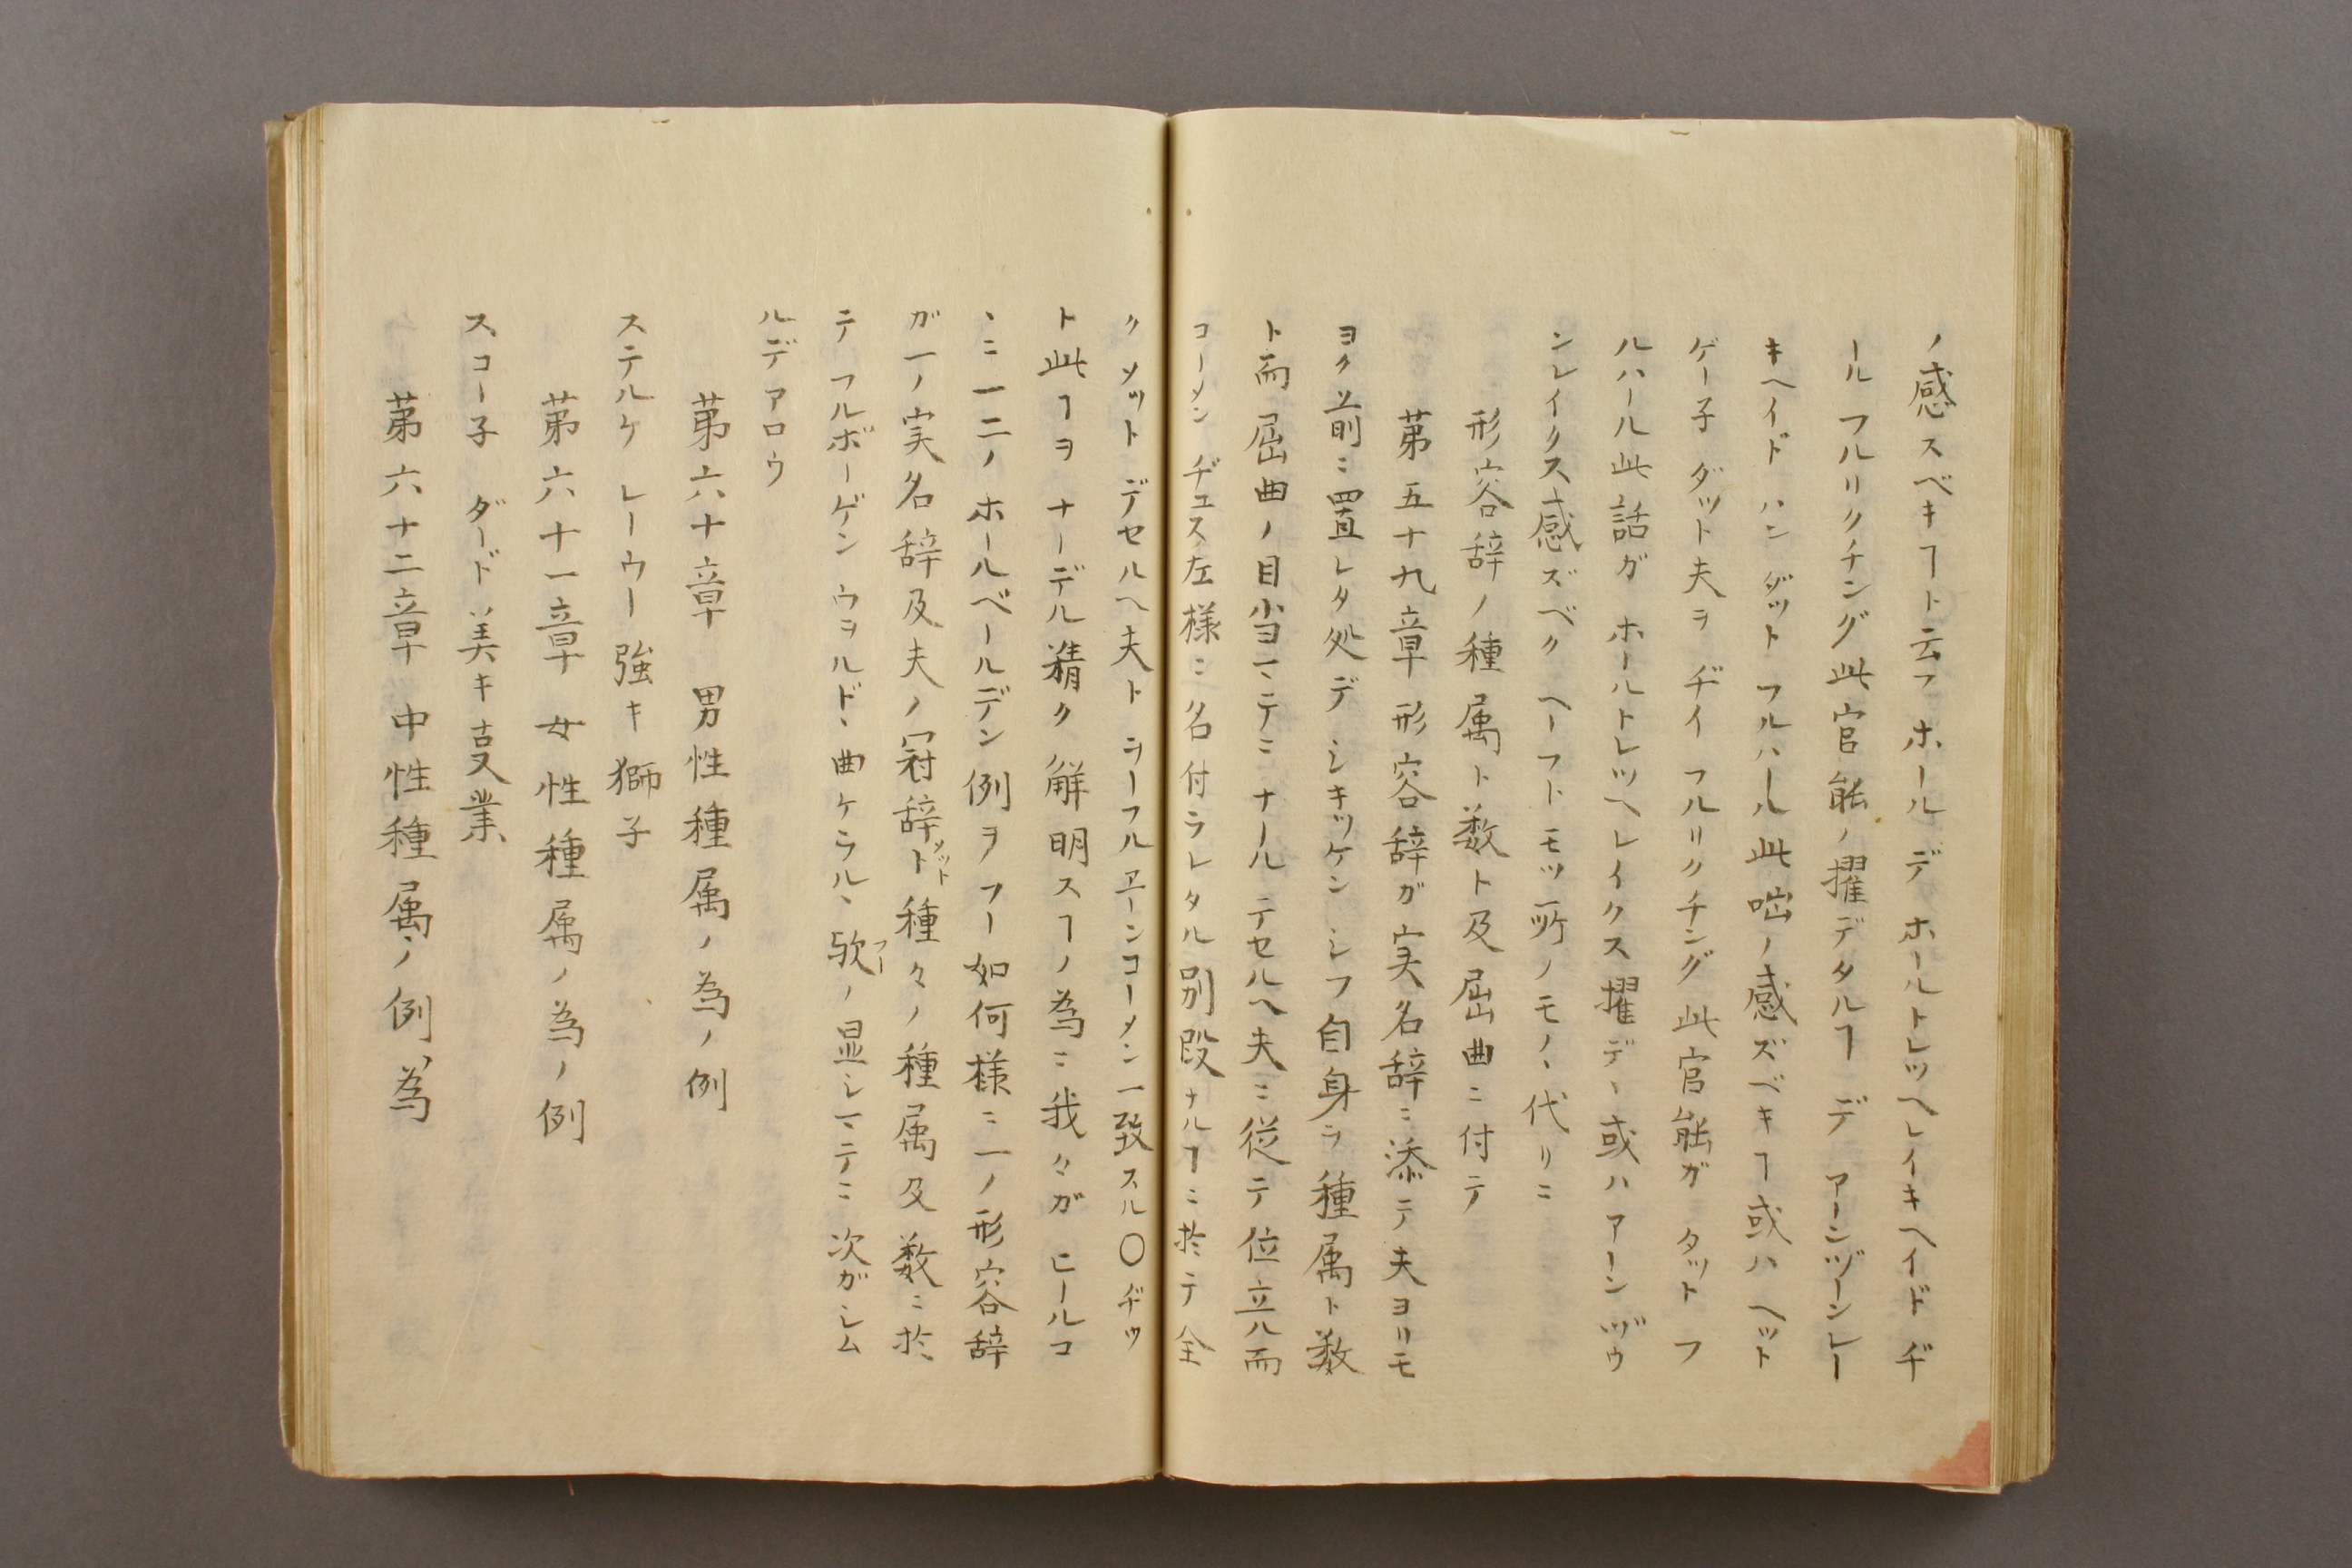 ノ感スベキヿト云フ ホール デ ホールトレツヘレイキヘイド ヂ
ール フルリクチング此官能ノ擢デタルヿ デ アーンヅーンレー
キヘイド ハン ダット フルハール此咄ノ感ズベキヿ或ハ ヘット
ゲー子 ダット夫ヲ ヂイ フルリクチング此官能ガ タット フ
ルハール此話ガ ホールトレツヘレイクス擢デヽ或ハ アーンヅウ
ンレイクス感ズベク ヘーフトモツ所ノモノヽ代リニ
形容辞ノ種属ト数ト及屈曲ニ付テ
第五十九章 形容辞ガ実名辞ニ添テ夫ヨリモ
ヨク前ニ置レタ処デ シキッケン シフ自身ヲ種属ト数
ト而屈曲ノ目当マテニ ナール デセルヘ夫ニ従テ位立ル而
コーメン ヂュス左様ニ名付ラレタル別段ナルヿニ於テ全
ク メット デセルヘ夫ト ヲーフルヱーンコーメン一致スル〇ヂッ
ト此ヿヲ ナーデル精ク解明スヿノ為ニ我々ガ ヒールコ
ヽニ一二ノ ホールベールデン例ヲ フー如何様ニ一ノ形容辞
ガ一ノ実名辞及夫ノ冠辞ト メット種々ノ種属及数ニ於
テ フルボーゲン ウヲルドヽ曲ケラルヽ欤 フーノ显シマテニ次ガシム
ルデアロウ
第六十章 男性種属ノ為ノ例
ステルケ レーウー強キ獅子
第六十一章 女性種属ノ為ノ例
スコー子 ダード美キ叓業
第六十二章 中性種属ノ例為